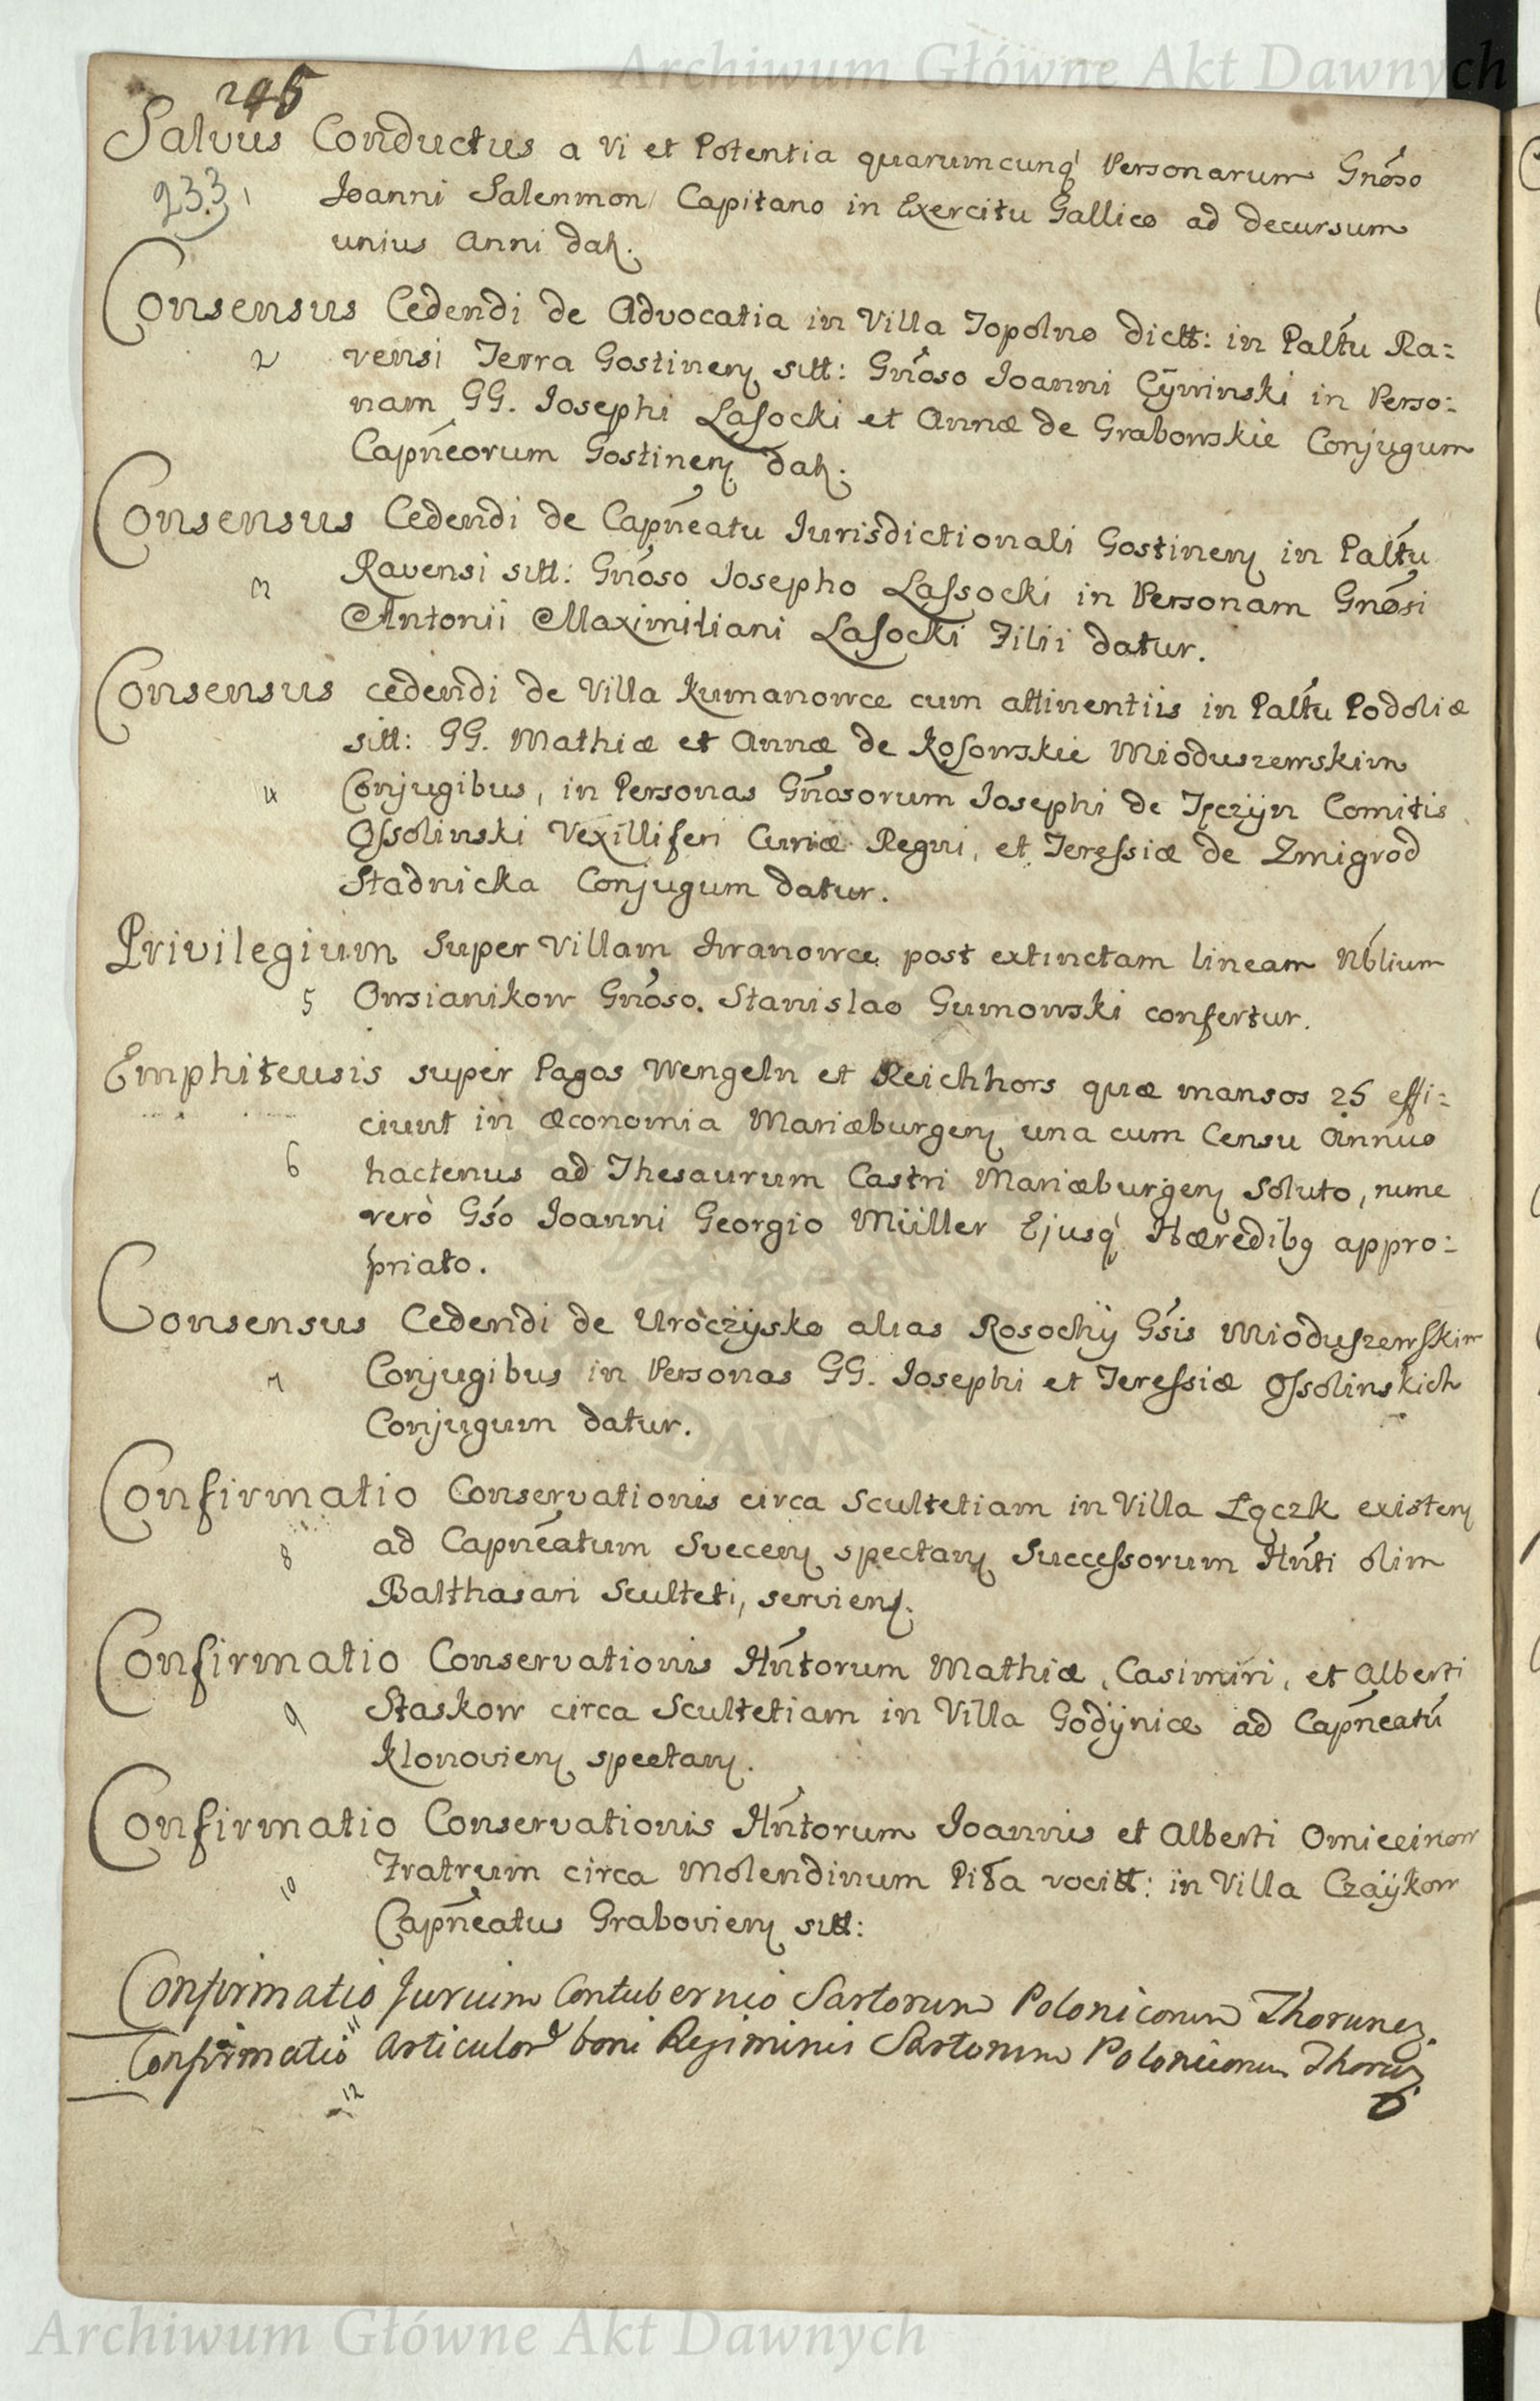 Archiwum Główne Akt Dawnych
245
Salvus Conductus a Vi et Potentia quarumcunq́ Personarum Gnóso
233 1 Joanni Salenmon Capitano in Exercitu Gallico ad decursum
unius Anni dat.
Consensus Cedendi de Advocatia in Villa Topolno dictt: in Paltu Ra=
2 vensi Terra Gostinen sitt: Gnóso Joanni Cywinski in Perso=
nam GG. Josephi Lasocki et Annæ de Grabowskie Conjugum
Capneorum Gostinen dat.
Consensus Cedendi de Capneatu Jurisdictionali Gostinen in Paltu
3 Ravensi sitt: Gnóso Josepho Lassocki in Personam Gnósi
Antonii Maximiliani Lasocki Filii datur.
Consensus cedendi de Villa Kumanowce cum attinentiis in Paltu Podoliæ
sitt: GG. Mathiæ et Annæ de Kosowskie Mioduszewskim
4 Conjugibus, in Personas Gnosorum Josephi de Tęczyn Comitis
Ossolinski Vexilliferi Curiæ Regni, et Teressiæ de Zmigrod
Stadnicka Conjugum datur.
Privilegium Super Villam Iwanowce post extinctam lineam Nblium
5 Owsianikow Gnóso. Stanislao Gumowski confertur.
Emphiteusis super Pagos Wengeln et Reichhors quæ mansos 25 effi=
ciunt in œconomia Mariæburgen una cum Censu Annuo
6 hactenus ad Thesaurum Castri Mariæburgen Soluto, nunc
verò Gso Joanni Georgio Müller Ejusq́ Hæredibq appro=
priato.
Consensus Cedendi de Uroczysko alias Rosochy Gsis Mioduszewskim
7 Conjugibus in Personas GG. Josephi et Teressiæ Ossolinskich
Conjugum datur.
Confirmatio Conservationis circa Scultetiam in Villa Łączk existen
8 ad Capneatum Svecen spectan Successorum Hnti olim
Balthasari Sculteti, servien.
Confirmatio Conservationis Hntorum Mathiæ, Casimiri, et Alberti
9 Staskow circa Scultetiam in Villa Godynice ad Capneatu
Klonovien spectan.
Confirmatio Conservationis Hntorum Joannis et Alberti Omiecinow
10 Fratrum circa Molendinum Piła vocitt: in Villa Czaykow
Capneatus Grabovien sitt:
Confirmatio Jurium Contubernio Sartorum Polonicorum Thorunen.
11
Confirmatio Articulor boni Regiminis Sartorum Polonicorum Thorun
12
Archiwum Główne Akt Dawnych